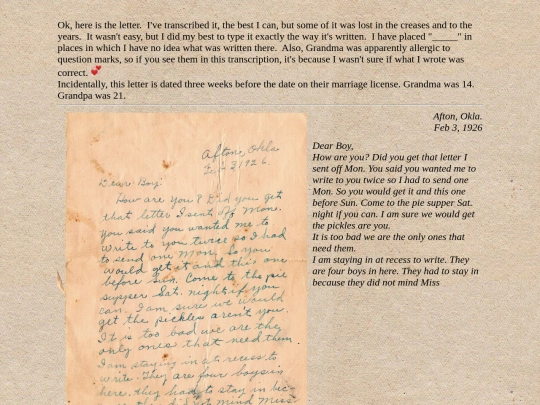 Ok, here is the letter. I've transcribed it, the best I can, but some of it was lost in the creases and to the
years. It wasn't easy, but I did my best to type it exactly the way it's written. I have placed "_____" in
places in which I have no idea what was written there. Also, Grandma was apparently allergic to
question marks, so if you see them in this transcription, it's because I wasn't sure if what I wrote was
correct. 💕
Incidentally, this letter is dated three weeks before the date on their marriage license. Grandma was 14.
Grandpa was 21.
Afton, Okla
3 1926
Dear Boy.
How are you? Did you get
that letter I sent off Mon.
You said you wanted me to
write to you twice so I had
to send one Mon. So you
would get it and this one
before Sun. Come to the pie
supper Sat. night if you
can. I am sure we would
get the pickles aren't you.
It is too bad we are the
only ones that need them
I am staying in at recess to
write. They are four boys in
here. they had to stay in bec-
mind Miss
Afton, Okla.
Feb 3, 1926
Dear Boy,
How are you? Did you get that letter I
sent off Mon. You said you wanted me to
write to you twice so I had to send one
Mon. So you would get it and this one
before Sun. Come to the pie supper Sat.
night if you can. I am sure we would get
the pickles are you.
It is too bad we are the only ones that
need them.
I am staying in at recess to write. They
are four boys in here. They had to stay in
because they did not mind Miss